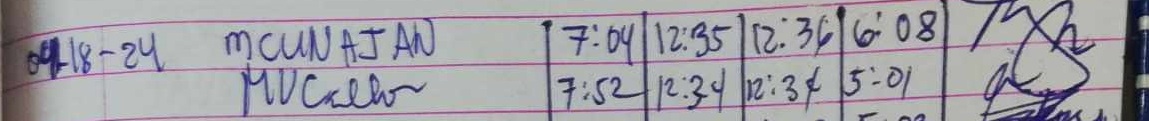 04-18-24 MCUNAJAN 7:04 12:35 12:36 6:08
7:52 12:34 12:34 5:01